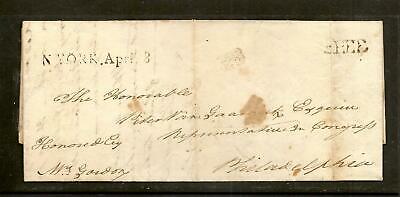 N YORK. April 8
FREE
The Honorable
Peter Van Gaasbeek Esquire
Representative In Congress
Honored By
Mr Gordon
Philadelphia